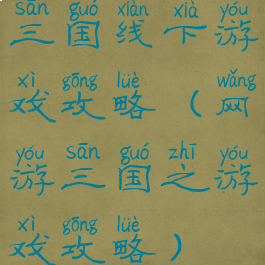 sān guó xiàn xià yóu
三国线下游
xì gōng lüè wǎng
戏攻略（网
yóu sān guó zhī yóu
游三国之游
xì gōng lüè
戏攻略）